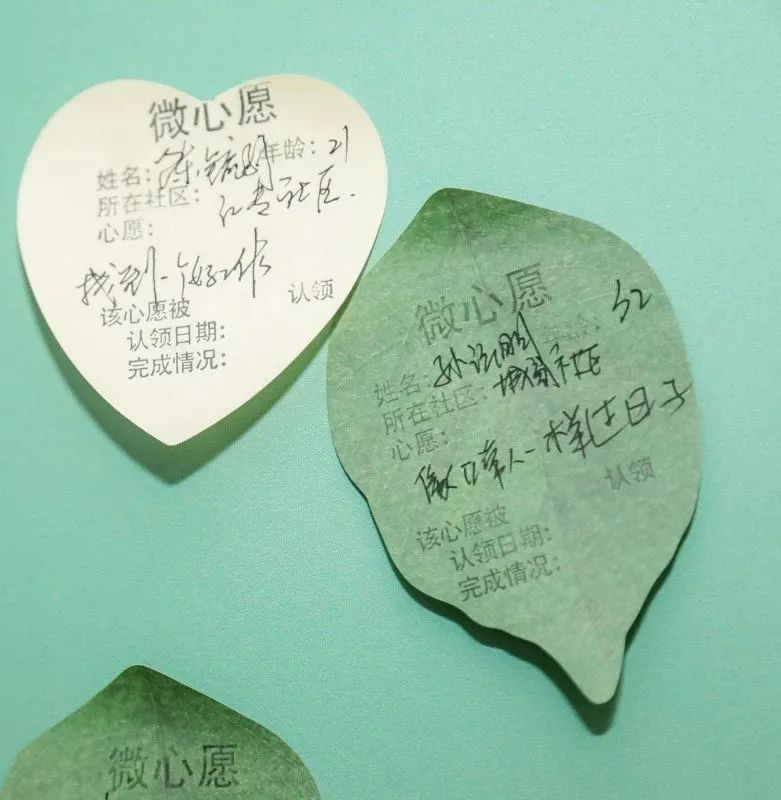 微心愿
姓名: 年龄: 21
所在社区: 社区.
心愿:
找到一个好工作
该心愿被 认领
认领日期:
完成情况:
微心愿
姓名: 孙 明 年龄: 52
所在社区: 社区
心愿:
像正常人一样过日子
该心愿被 认领
认领日期:
完成情况:
微心愿